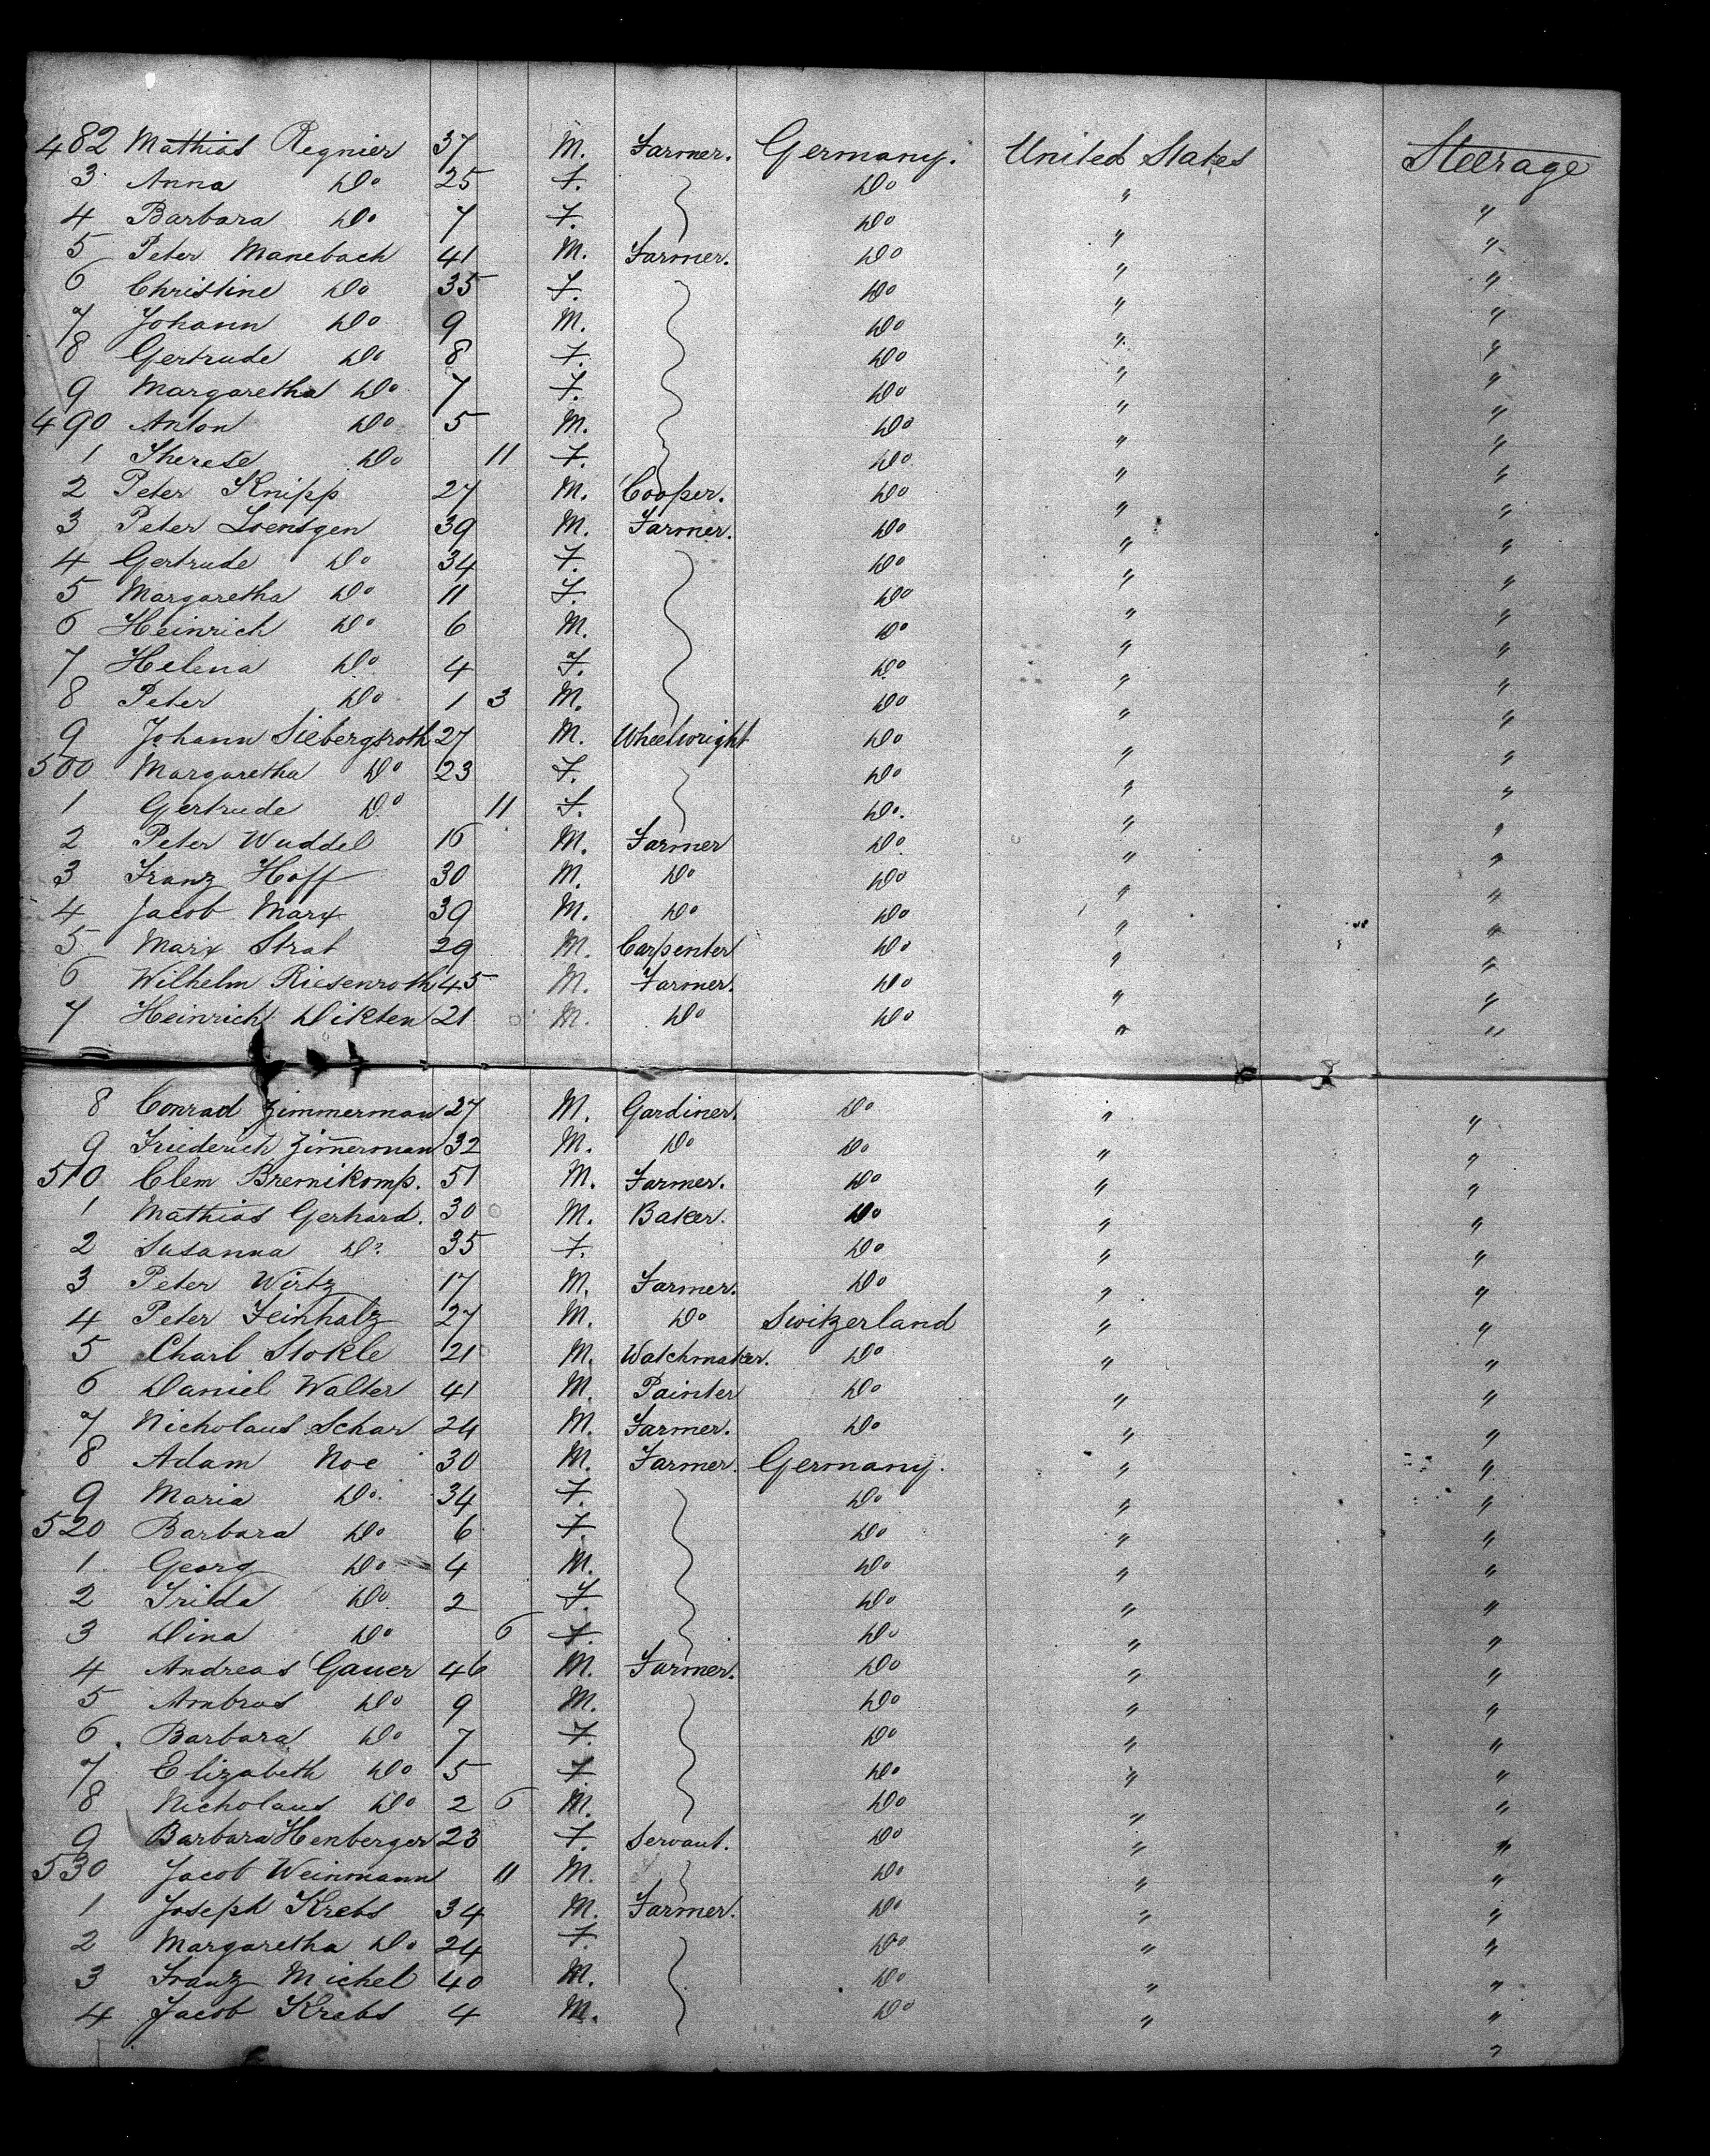 482 Mathias Regnier 37 M. Farmer. Germany. United States Steerage
3 Anna Do 25 F. Do " "
4 Barbara Do 7 F. Do " "
5 Peter Manebach 41 M. Farmer. Do " "
6 Christine Do 35 F. Do " "
7 Johann Do 9 M. Do " "
8 Gertrude Do 8 F. Do " "
9 Margaretha Do 7 F. Do " "
490 Anton Do 5 M. Do " "
1 Therese Do 11 F. Do " "
2 Peter Knipp 27 M. Cooper. Do " "
3 Peter Loentgen 39 M. Farmer. Do " "
4 Gertrude Do 34 F. Do " "
5 Margaretha Do 11 F. Do " "
6 Heinrich Do 6 M. Do " "
7 Helena Do 4 F. Do " "
8 Peter Do 1 3 M. Do " "
9 Johann Siebergsroth 27 M. Wheelwright Do " "
500 Margaretha Do 23 F. Do " "
1 Gertrude Do 11 F. Do. " "
2 Peter Wuddel 16 M. Farmer Do " "
3 Franz Hoff 30 M. Do Do " "
4 Jacob Marx 39 M. Do Do " "
5 Marx Strat 29 M. Carpenter Do " "
6 Wilhelm Riesenroth 45 M. Farmer. Do " "
7 Heinrich Dikten 21 M. Do Do " "
8 Conrad Zimmerman 27 M. Gardiner. Do " "
9 Friederich Zim̄erman 32 M. Do Do " "
510 Clem Bremikomp. 51 M. Farmer. Do " "
1 Mathias Gerhard. 30 M. Baker. Do " "
2 Susanna Do. 35 F. Do " "
3 Peter Wirtz 17 M. Farmer. Do " "
4 Peter Feinholz 27 M. Do Switzerland " "
5 Charl Stokle 21 M. Watchmaker. Do " "
6 Daniel Walter 41 M. Painter Do " "
7 Nicholaus Schar 24 M. Farmer. Do " "
8 Adam Noe 30 M. Farmer. Germany. " "
9 Maria Do. 34 F. Do " "
520 Barbara Do 6 F. Do " "
1 Georg Do 4 M. Do " "
2 Frida Do 2 F. Do " "
3 Dina Do 6 F. Do " "
4 Andreas Gauer 46 M. Farmer. Do " "
5 Ambros Do 9 M. Do " "
6. Barbara Do 7 F. Do " "
7 Elizabeth Do 5 F Do " "
8 Nicholaus Do 2 6 M. Do " "
9 Barbara Henberger 23 F. Servant. Do " "
530 Jacob Weinmann 11 M. Do " "
1 Joseph Krebs 34 M. Farmer. Do " "
2 Margaretha Do 24 F. Do " "
3 Franz Michel 40 M. Do " "
4 Jacob Krebs 4 M. Do " "
"